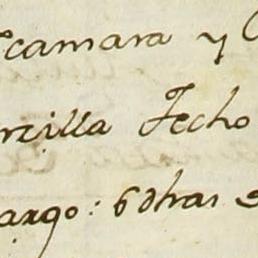 camara y
rcilla Fecho
argo: 6 dhas